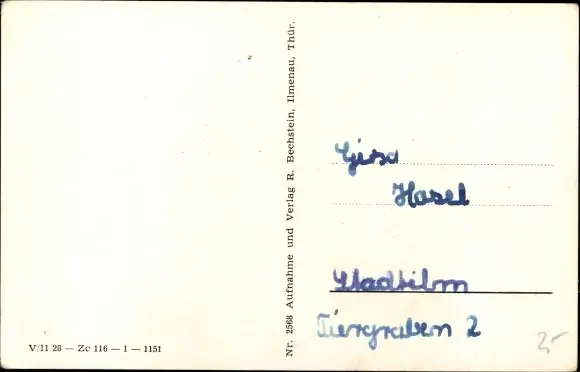 V/11 28 — Zc 116 — 1 — 1151
Nr. 2568 Aufnahme und Verlag R. Bechstein, Ilmenau, Thür.
Gisa
Hasel
Stadtilm
Tiergraben 2
25-